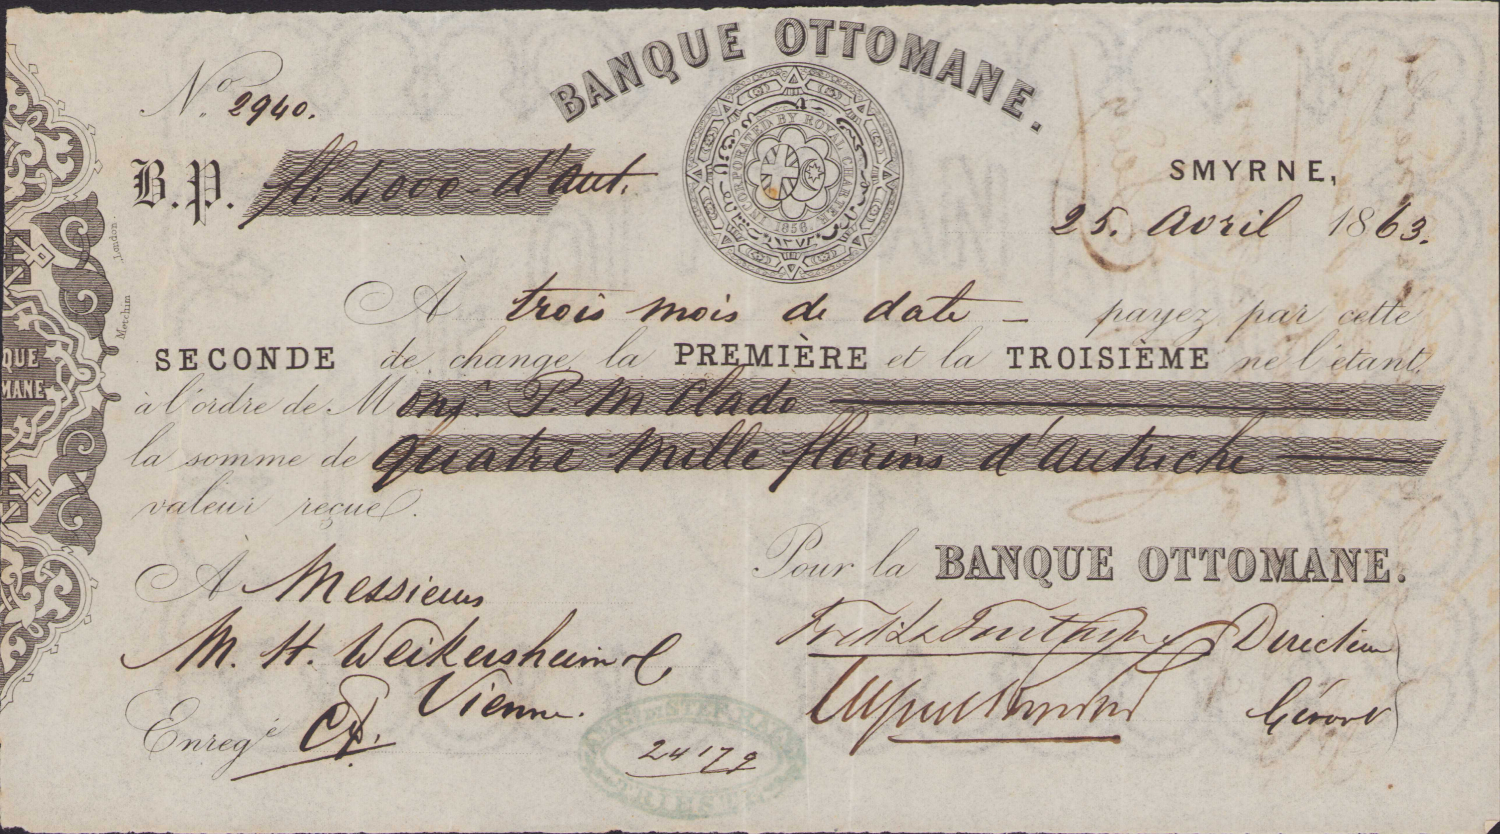 BANQUE OTTOMANE.
No. 2940.
INCORPORATED BY ROYAL CHARTER
1856
B.P. fl. 4000 d'aut.
SMYRNE,
25. Avril 1863.
À trois mois de date — payez par cette
SECONDE de change la PREMIÈRE et la TROISIÈME ne l'étant,
à l'ordre de Monsr. P. M. Clado
la somme de Quatre Mille florins d'autriche
valeur reçue.
À Messieurs
Pour la BANQUE OTTOMANE.
M. H. Weikersheim & C,
Directeur
Vienne.
Gérant
Enregé
24172
TRIESTE
QUE
MANE
Metchim
London.